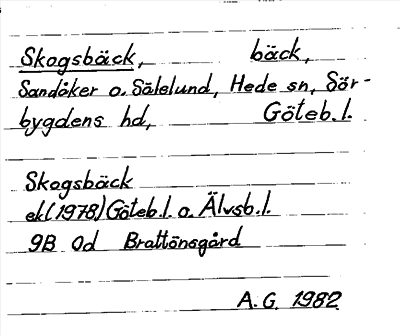 Skogsbäck, bäck,
Sandåker o. Sälelund, Hede sn, Sör-
bygdens hd, Göteb. l.
Skogsbäck
ek (1978) Göteb. l. o. Älvsb. l.
9B 0d Brattönsgård
A. G. 1982